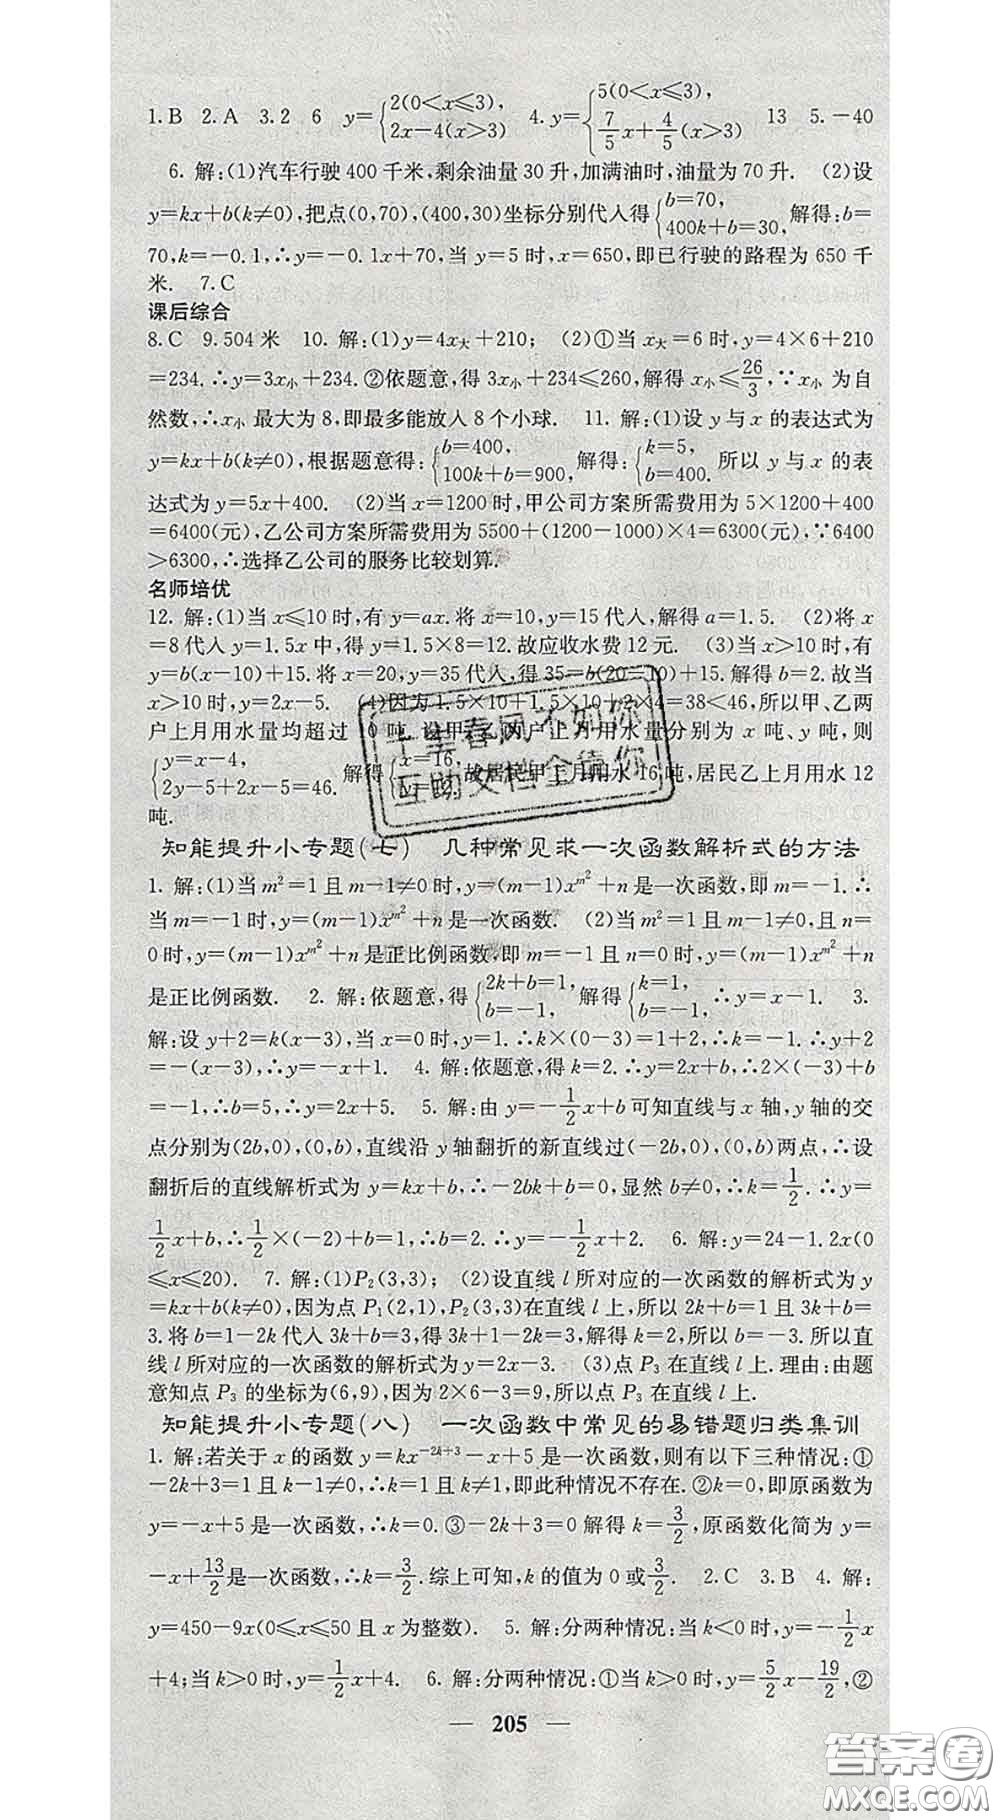 1.B 2.A 3.2 6 y={2(0<x⩽3), 2x-4(x>3) 4.y={5(0<x⩽3), 7/5x+4/5(x>3) 13 5.-40
6. 解:(1)汽车行驶400千米,剩余油量30升,加满油时,油量为70升. (2)设
y=kx+b(k≠0),把点(0,70),(400,30)坐标分别代入得{b=70, 400k+b=30,解得:b=
70,k=-0.1,∴y=-0.1x+70,当y=5时,x=650,即已行驶的路程为650千
米. 7.C
课后综合
8.C 9.504米 10. 解:(1)y=4x大+210; (2)①当x大=6时,y=4×6+210
=234.∴y=3x小+234.②依题意,得3x小+234⩽260,解得x小⩽26/3,∵x小为自
然数,∴x小最大为8,即最多能放入8个小球. 11. 解:(1)设y与x的表达式为
y=kx+b(k≠0),根据题意得:{b=400, 100k+b=900,解得:{k=5, b=400.所以y与x的表
达式为y=5x+400. (2)当x=1200时,甲公司方案所需费用为5×1200+400
=6400(元),乙公司方案所需费用为5500+(1200-1000)×4=6300(元),∵6400
>6300,∴选择乙公司的服务比较划算.
名师培优
12. 解:(1)当x⩽10时,有y=ax.将x=10,y=15代入,解得a=1.5. (2)将x
=8代入y=1.5x中,得y=1.5×8=12.故应收水费12元. (3)当x>10时,有
y=b(x-10)+15.将x=20,y=35代入,得35=b(20-10)+15.解得b=2.故当
x>10时,y=2x-5. (4)因为1.5×10+1.5×10+2×4=38<46,所以甲、乙两
户上月用水量均超过10吨.设甲、乙两户上月用水量分别为x吨、y吨,则
{y=x-4, 2y-5+2x-5=46. 解得{x=16, 故居民甲上月用水16吨,居民乙上月用水12
吨.
千里春风不如你
互助文档全靠你
知能提升小专题(七) 几种常见求一次函数解析式的方法
1. 解:(1)当m²=1且m-1≠0时,y=(m-1)x^m²+n是一次函数,即m=-1.∴
当m=-1时,y=(m-1)x^m²+n是一次函数. (2)当m²=1且m-1≠0,且n=
0时,y=(m-1)x^m²+n是正比例函数,即m=-1且n=0时,y=(m-1)x^m²+n
是正比例函数. 2. 解:依题意,得{2k+b=1, b=-1,解得{k=1, b=-1,∴y=x-1. 3.
解:设y+2=k(x-3),当x=0时,y=1.∴k×(0-3)=1+2,∴k=-1.∴y+2
=-(x-3),∴y=-x+1. 4. 解:依题意,得k=2.∴y=2x+b,∴2×(-3)+b
=-1,∴b=5,∴y=2x+5. 5. 解:由y=-1/2x+b可知直线与x轴,y轴的交
点分别为(2b,0),(0,b),直线沿y轴翻折的新直线过(-2b,0),(0,b)两点,∴设
翻折后的直线解析式为y=kx+b,∴-2bk+b=0,显然b≠0,∴k=1/2.∴y=
1/2x+b,∴1/2×(-2)+b=1,∴b=2.∴y=-1/2x+2. 6. 解:y=24-1.2x(0
⩽x⩽20). 7. 解:(1)P₂(3,3); (2)设直线l所对应的一次函数的解析式为y
=kx+b(k≠0),因为点P₁(2,1),P₂(3,3)在直线l上,所以2k+b=1且3k+b=
3.将b=1-2k代入3k+b=3,得3k+1-2k=3,解得k=2,所以b=-3.所以直
线l所对应的一次函数的解析式为y=2x-3. (3)点P₃在直线l上.理由:由题
意知点P₃的坐标为(6,9),因为2×6-3=9,所以点P₃在直线l上.
知能提升小专题(八) 一次函数中常见的易错题归类集训
1. 解:若关于x的函数y=kx^-2k+3-x+5是一次函数,则有以下三种情况:①
-2k+3=1且k-1≠0,∴k=1且k≠1,即此种情况不存在.②k=0,即原函数为
y=-x+5是一次函数,∴k=0.③-2k+3=0解得k=3/2,原函数化简为y=
-x+13/2是一次函数,∴k=3/2.综上可知,k的值为0或3/2. 2.C 3.B 4. 解:
y=450-9x(0⩽x⩽50且x为整数). 5. 解:分两种情况:当k<0时,y=-1/2x
+4;当k>0时,y=1/2x+4. 6. 解:分两种情况:①当k>0时,y=5/2x-19/2,②
— 205 —
答案圈
MXQE.COM